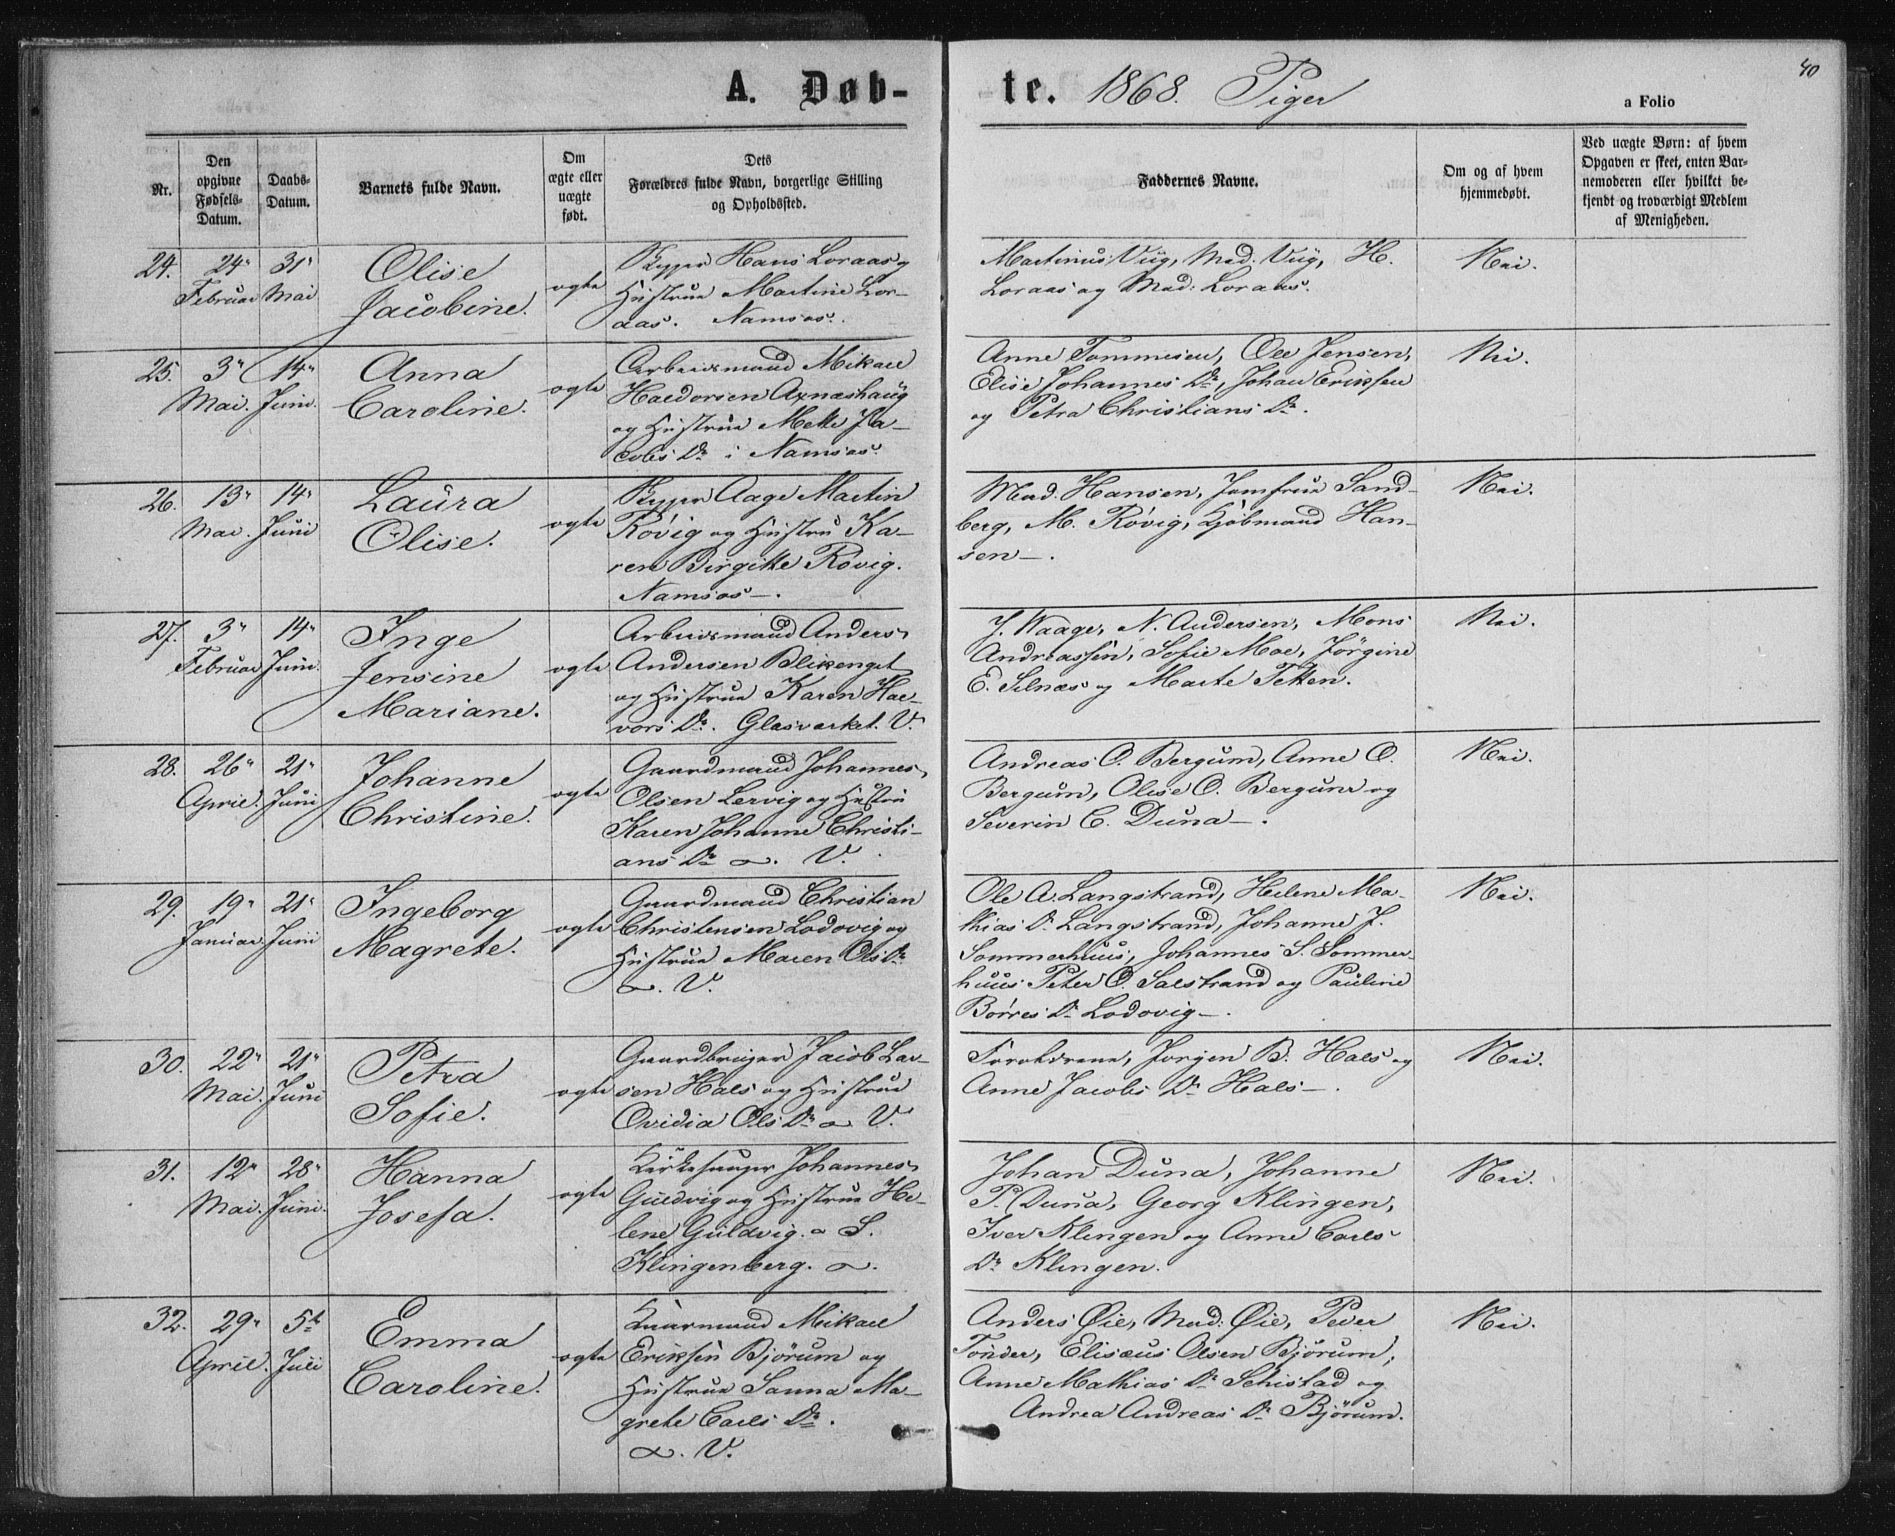 A. Døb-te. 1868. Piger
40
a Folio
Nr.
Den opgivne Fødsels-Datum.
Daabs-Datum.
Barnets fulde Navn.
Om ægte eller uægte født.
Dets Forældres fulde Navn, borgerlige Stilling og Opholdssted.
Faddernes Navne.
Om og af hvem hjemmedøbt.
Ved uægte Børn: af hvem Opgaven er skeet, enten Barnemoderen eller hvilket bekjendt og troværdigt Medlem af Menigheden.
24.
24"
Februar
31"
Mai
Olise
Jacobine.
ægte
Skipper Hans Loraas og
Hustrue Martine Lor-
aas. Namsos.
Martinus Viig, Mad. Viig, H.
Loraas og Mad: Loraas.
Nei.
25.
3"
Mai.
14"
Juni.
Anna
Caroline.
ægte
Arbeidsmand Mikael
Haldorsen Axnæshaug
og Hustrue Mette Ja-
cobs Dr i Namsos
Anne Tommesen, Ole Jensen,
Elise Johannes Dr, Johan Eriksen
og Petra Christians Dr.
Nei.
26.
13"
Mai.
14"
Juni
Laura
Olise.
ægte
Skipper Aage Martin
Rövig og Hustru Ka-
ren Birgitte Rövig.
Namsos-.
Mad. Hansen, Jomfrue Sand-
berg, M. Rövig, Kjöbmand Han-
sen-.
Nei.
27.
3"
Februar
14"
Juni.
Inge
Jensine
Mariane.
ægte
Arbeidsmand Anders
Andersen Blikenget
og Hustrue Karen Hal-
vors Dr. Glasværket. V.
J. Waage, N. Andersen, Mons
Andreassen, Sofie Moe, Jörgine
E. Selnæs og Marte Tetten.
Nei.
28.
26"
April.
21"
Juni
Johanne
Christine.
ægte
Gaardmand Johannes
Olsen Lervig og Hustru
Karen Johanne Christi-
ans Dr a. V.
Andreas O. Bergum, Anne O.
Bergum, Olise O. Bergum og
Severin C. Duna-.
Nei.
29.
19"
Januar
21"
Juni
Ingeborg
Magrete.
ægte
Gaardmand Christian
Christensen Lodovig og
Hustrue Maren Ols Dr
a. V.
Ole A. Langstrand, Helene Ma-
thias Dr Langstrand, Johanne J.
Sommerhuus, Johannes S. Sommer-
huus Peter O. Salstrand og Pauline
Börres Dr Lodovig-.
Nei.
30.
22"
Mai.
21"
Juni
Petra
Sofie.
ægte
Gaardbruger Jacob Lar-
sen Hals og Hustrue
Ovidia Ols Dr a V.
Forældrene, Jorgen B. Hals og
Anne Jacobs Dr Hals-.
Nei.
31.
12"
Mai.
28"
Juni.
Hanna
Josefa.
ægte
Kirkesanger Johannes
Guldvig og Hustrue He-
lene Guldvig. a S.
Klingenberg. a.
Johan Duna, Johanne
P. Duna, Georg Klingen,
Iver Klingen og Anne Carls
Dr Klingen.
Nei.
32.
29"
April.
5te
Juli
Emma
Caroline.
ægte
Mikael
Eriksen Bjørum og
Hustrue Sanna Ma-
grete Carls Dr.
a. V.
Anders Øie, Mad: Øie, Peder
Tönder, Elisæus Olsen Bjørum,
Anne Mathias Dr Sehistad og
Andrea Andreas Dr Bjørum.
Nei.